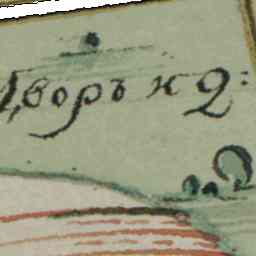 Дворъ к2: